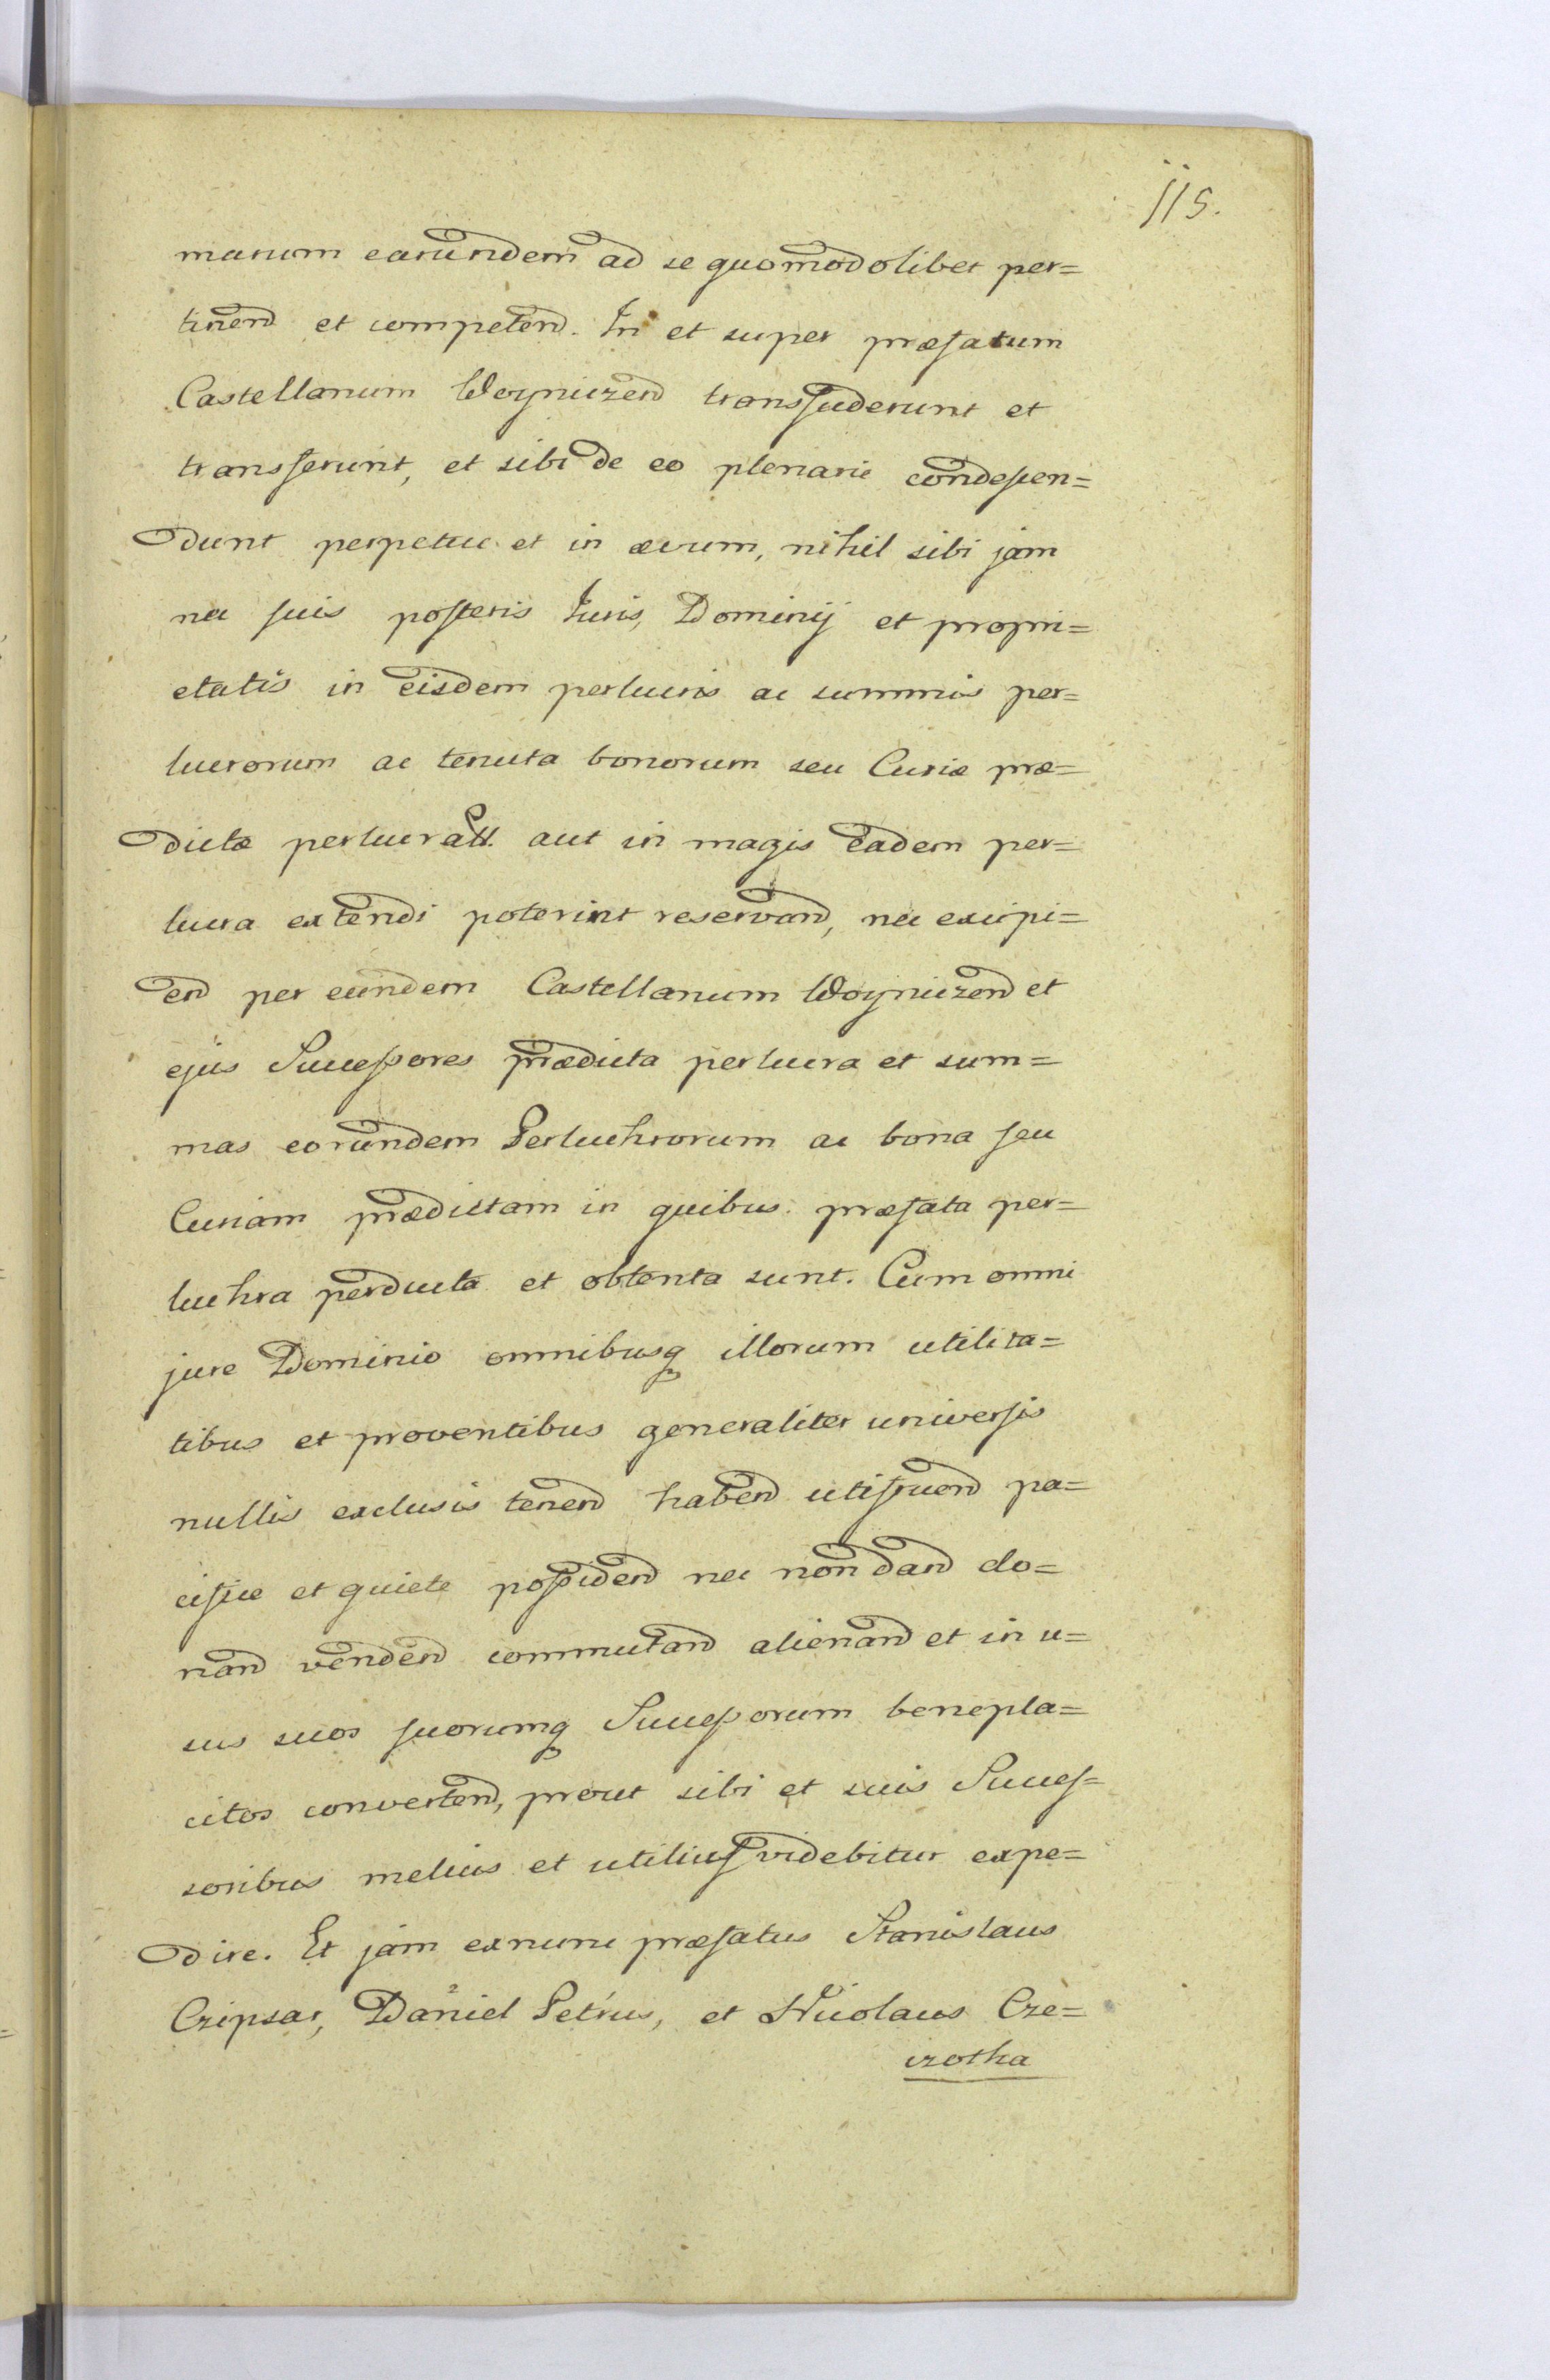 115.
marum earundem ad se quomodolibet per=
tinend et competend. In et super præfatum
Castellanum Woyniczen transfuderunt et
transferunt, et sibi de eo plenarie condescen=
dunt perpetue et in ævum, nihil sibi jam
nec suis posteris Juris, Dominij et propri=
etatis in eisdem perlucris ac summis per=
lucrorum ac tenuta bonorum seu Curiæ præ=
dictæ perlucratt. aut in magis eadem per=
lucra extendi poterint reservand, nec excipi=
end per eundem Castellanum Woyniczen et
ejus Successores prædicta perlucra et sum=
mas eorundem Perluchrorum ac bona seu
Curiam prædictam in quibus præfata per=
luchra perducta et obtenta sunt. Cum omni
jure Dominio omnibusq illorum utilita=
tibus et proventibus generaliter universis
nullis exclusis tenend habend utifruend pa=
cifice et quiete possidend nec non dand do=
nand vendend commutand alienand et in u=
sus suos suorumq Successorum benepla=
citos convertend, prout sibi et suis Succes=
soribus melius et utilius videbitur expe=
dire. Et jam exnunc præfatus Stanislaus
Czipsar, Daniel Petrus, et Nicolaus Cze=
czotka